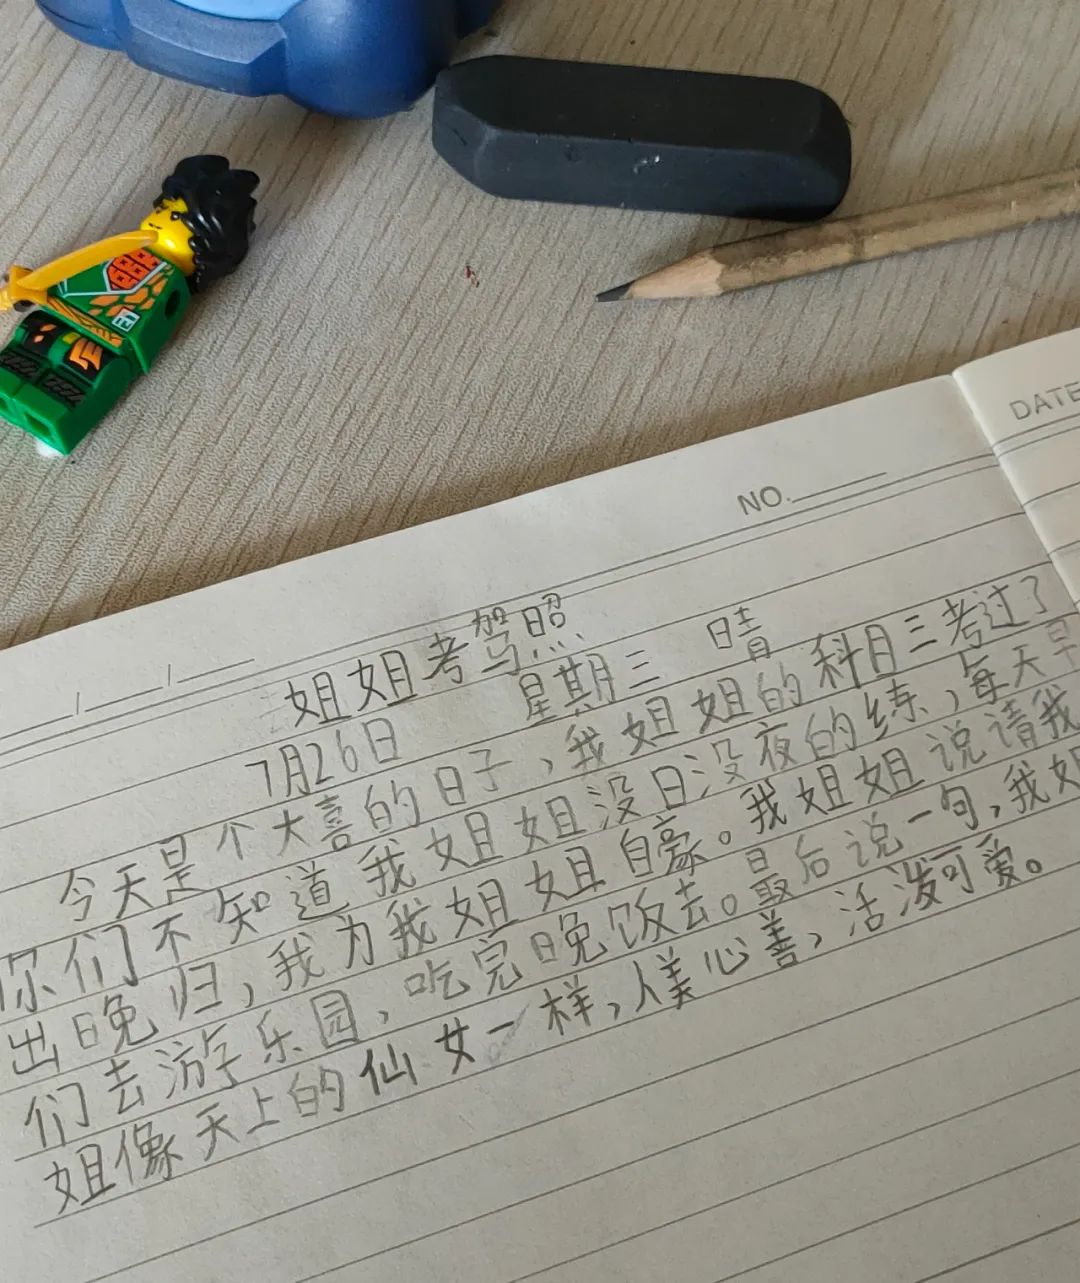 NO.
DATE
姐姐考驾照
7月26日 星期三 晴
今天是个大喜的日子，我姐姐的科目三考过了
你们不知道我姐姐没日没夜的练，每天早
出晚归，我为我姐姐自豪。我姐姐说请我
们去游乐园，吃完晚饭去。最后说一句，我姐
姐像天上的仙女一样，人美心善，活泼可爱。